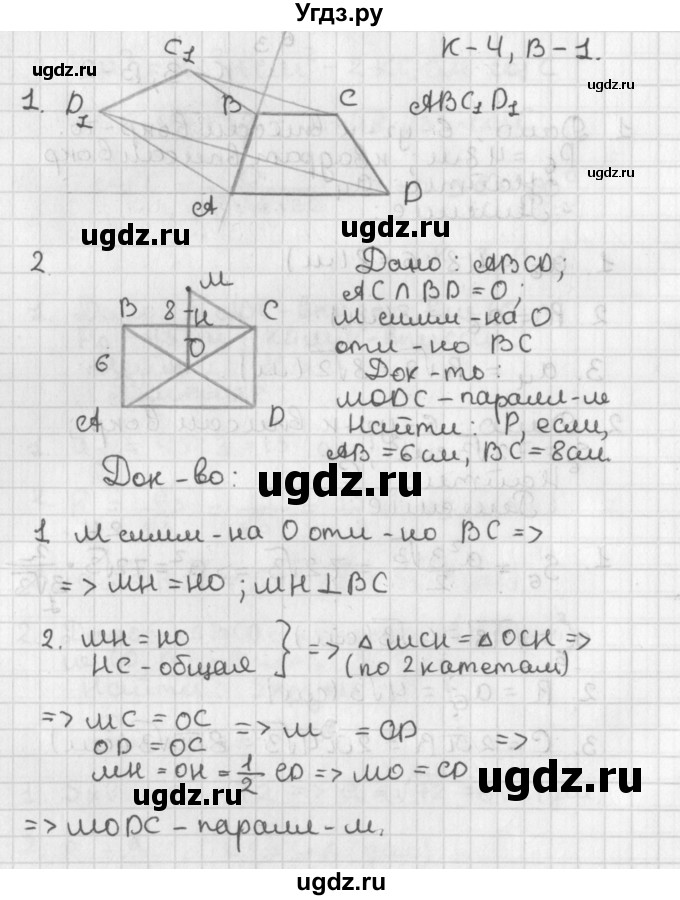 Угдз.ру
К-4, В-1.
1. D1 C1 a B C A D ABC1D1
2
Дано: ABCD;
AC ∩ BD = O;
M симм-на O
отн-но BC
Док-ть:
MODC - паралл-м
Найти: P, если,
AB = 6см, BC = 8см.
M
B 8 H C
6 O
A D
Док-во:
1. M симм-на O отн-но BC =>
=> MH = HO; MH ⊥ BC
2. MH = HO
HC - общая } => △ MCH = △ OCH =>
(по 2 катетам)
=> MC = OC => M = OD
OD = OC =>
MH = OH = 1/2 CD => MO = CD
=> MODC - паралл-м.
ugdz.ru
ugdz.ru
ugdz.ru
ugdz.ru
ugdz.ru
ugdz.ru
ugdz.ru
ugdz.ru
ugdz.ru
ugdz.ru